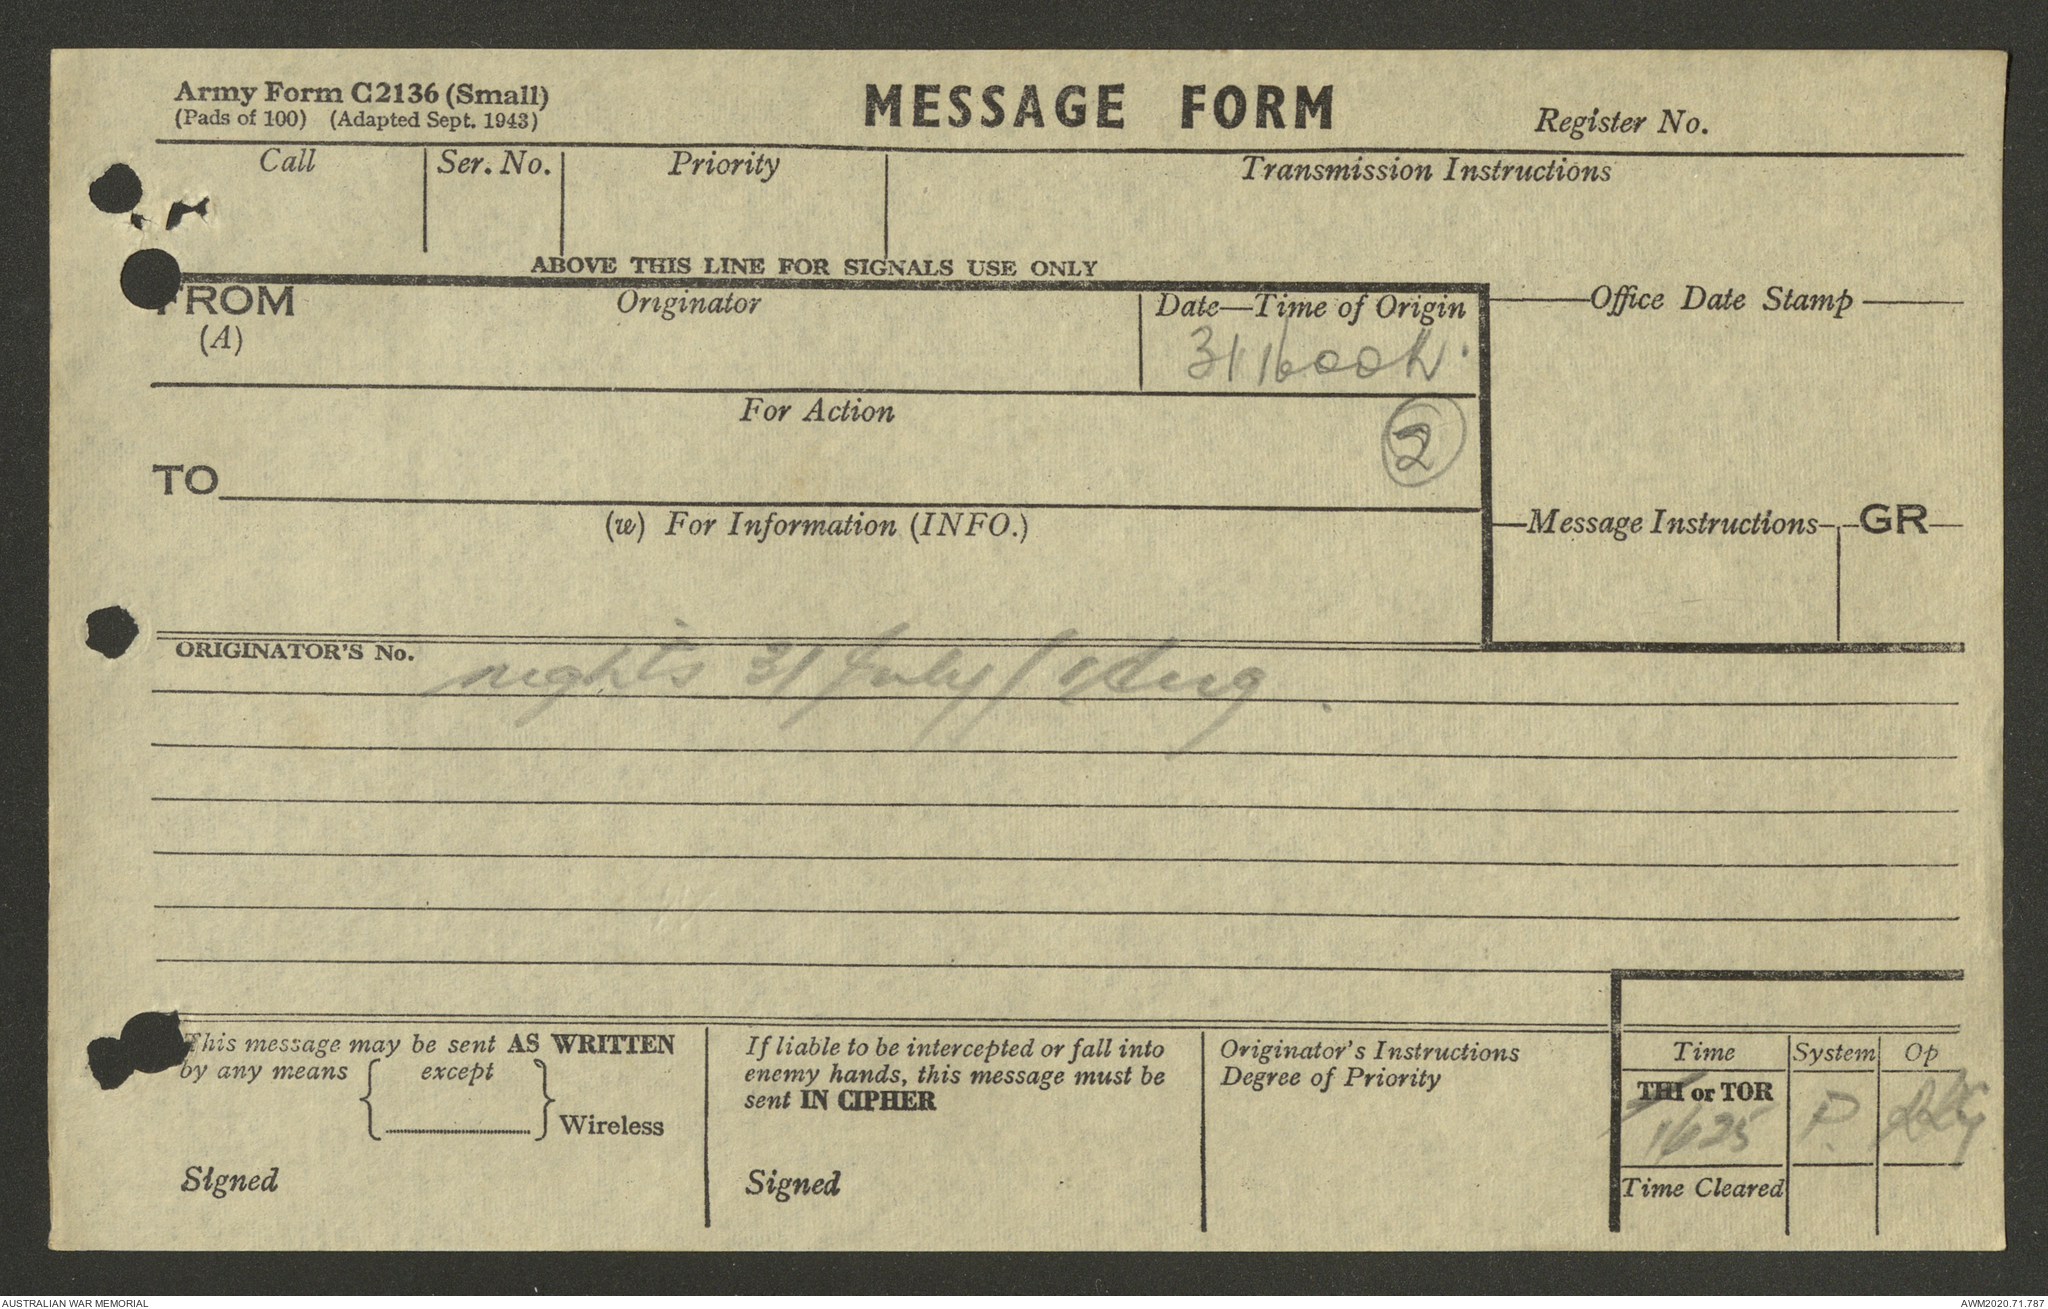 Army Form C2136 (Small)
(Pads of 100) (Adapted Sept. 1943)
MESSAGE FORM
Register No.
Call
Ser. No.
Priority
Transmission Instructions
ABOVE THIS LINE FOR SIGNALS USE ONLY
FROM
(A)
Originator
Date—Time of Origin
311600h.
Office Date Stamp
For Action
2
TO
(w) For Information (INFO.)
Message Instructions
GR
ORIGINATOR'S No.
nights 31 July / 1 Aug.
This message may be sent AS WRITTEN
by any means except
Wireless
Signed
If liable to be intercepted or fall into
enemy hands, this message must be
sent IN CIPHER
Signed
Originator's Instructions
Degree of Priority
Time
System
Op
THI or TOR
1625
P.
Time Cleared
AUSTRALIAN WAR MEMORIAL
AWM2020.71.787